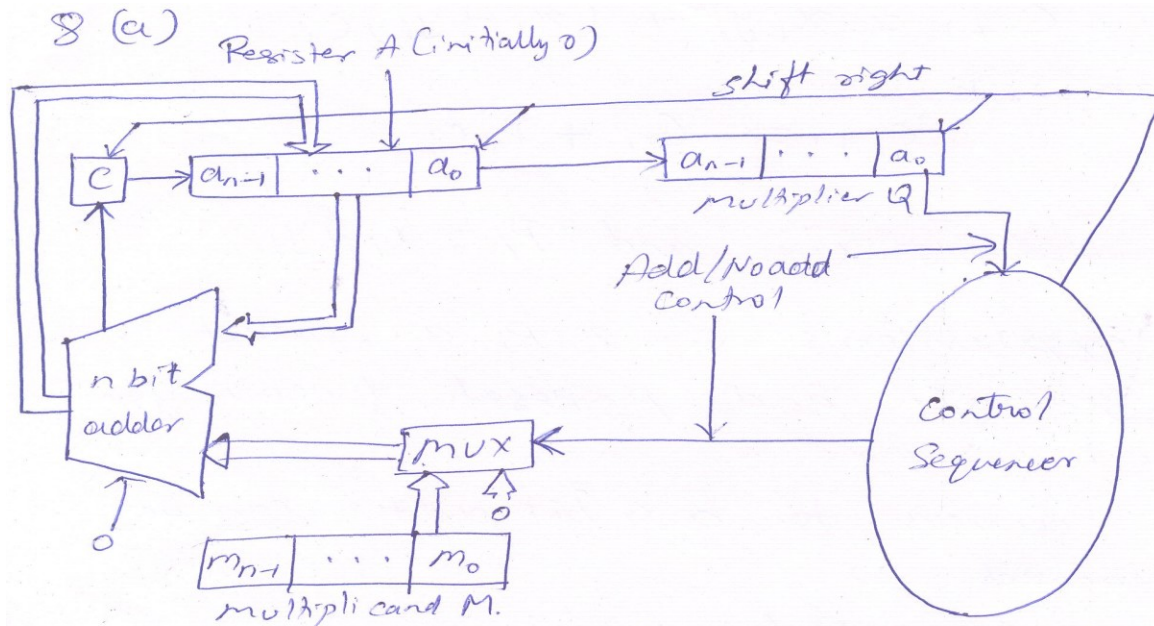 8 (a)
Register A (initially 0)
shift right
C
an-1 . . . a0
an-1 . . . a0
multiplier Q
Add/Noadd
control
n bit
adder
0
MUX
0
control
Sequencer
mn-1 . . . m0
multiplicand M.